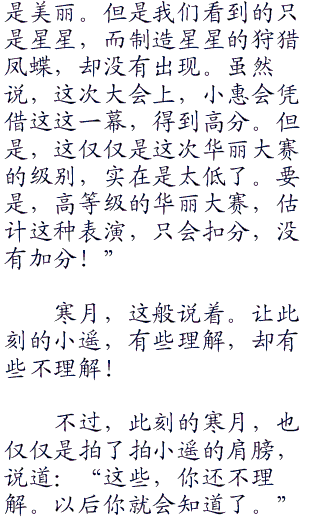 是美丽。但是我们看到的只
是星星，而制造星星的狩猎
凤蝶，却没有出现。虽然
说，这次大会上，小惠会凭
借这这一幕，得到高分。但
是，这仅仅是这次华丽大赛
的级别，实在是太低了。要
是，高等级的华丽大赛，估
计这种表演，只会扣分，没
有加分！”
寒月，这般说着。让此
刻的小遥，有些理解，却有
些不理解！
不过，此刻的寒月，也
仅仅是拍了拍小遥的肩膀，
说道：“这些，你还不理
解。以后你就会知道了。”